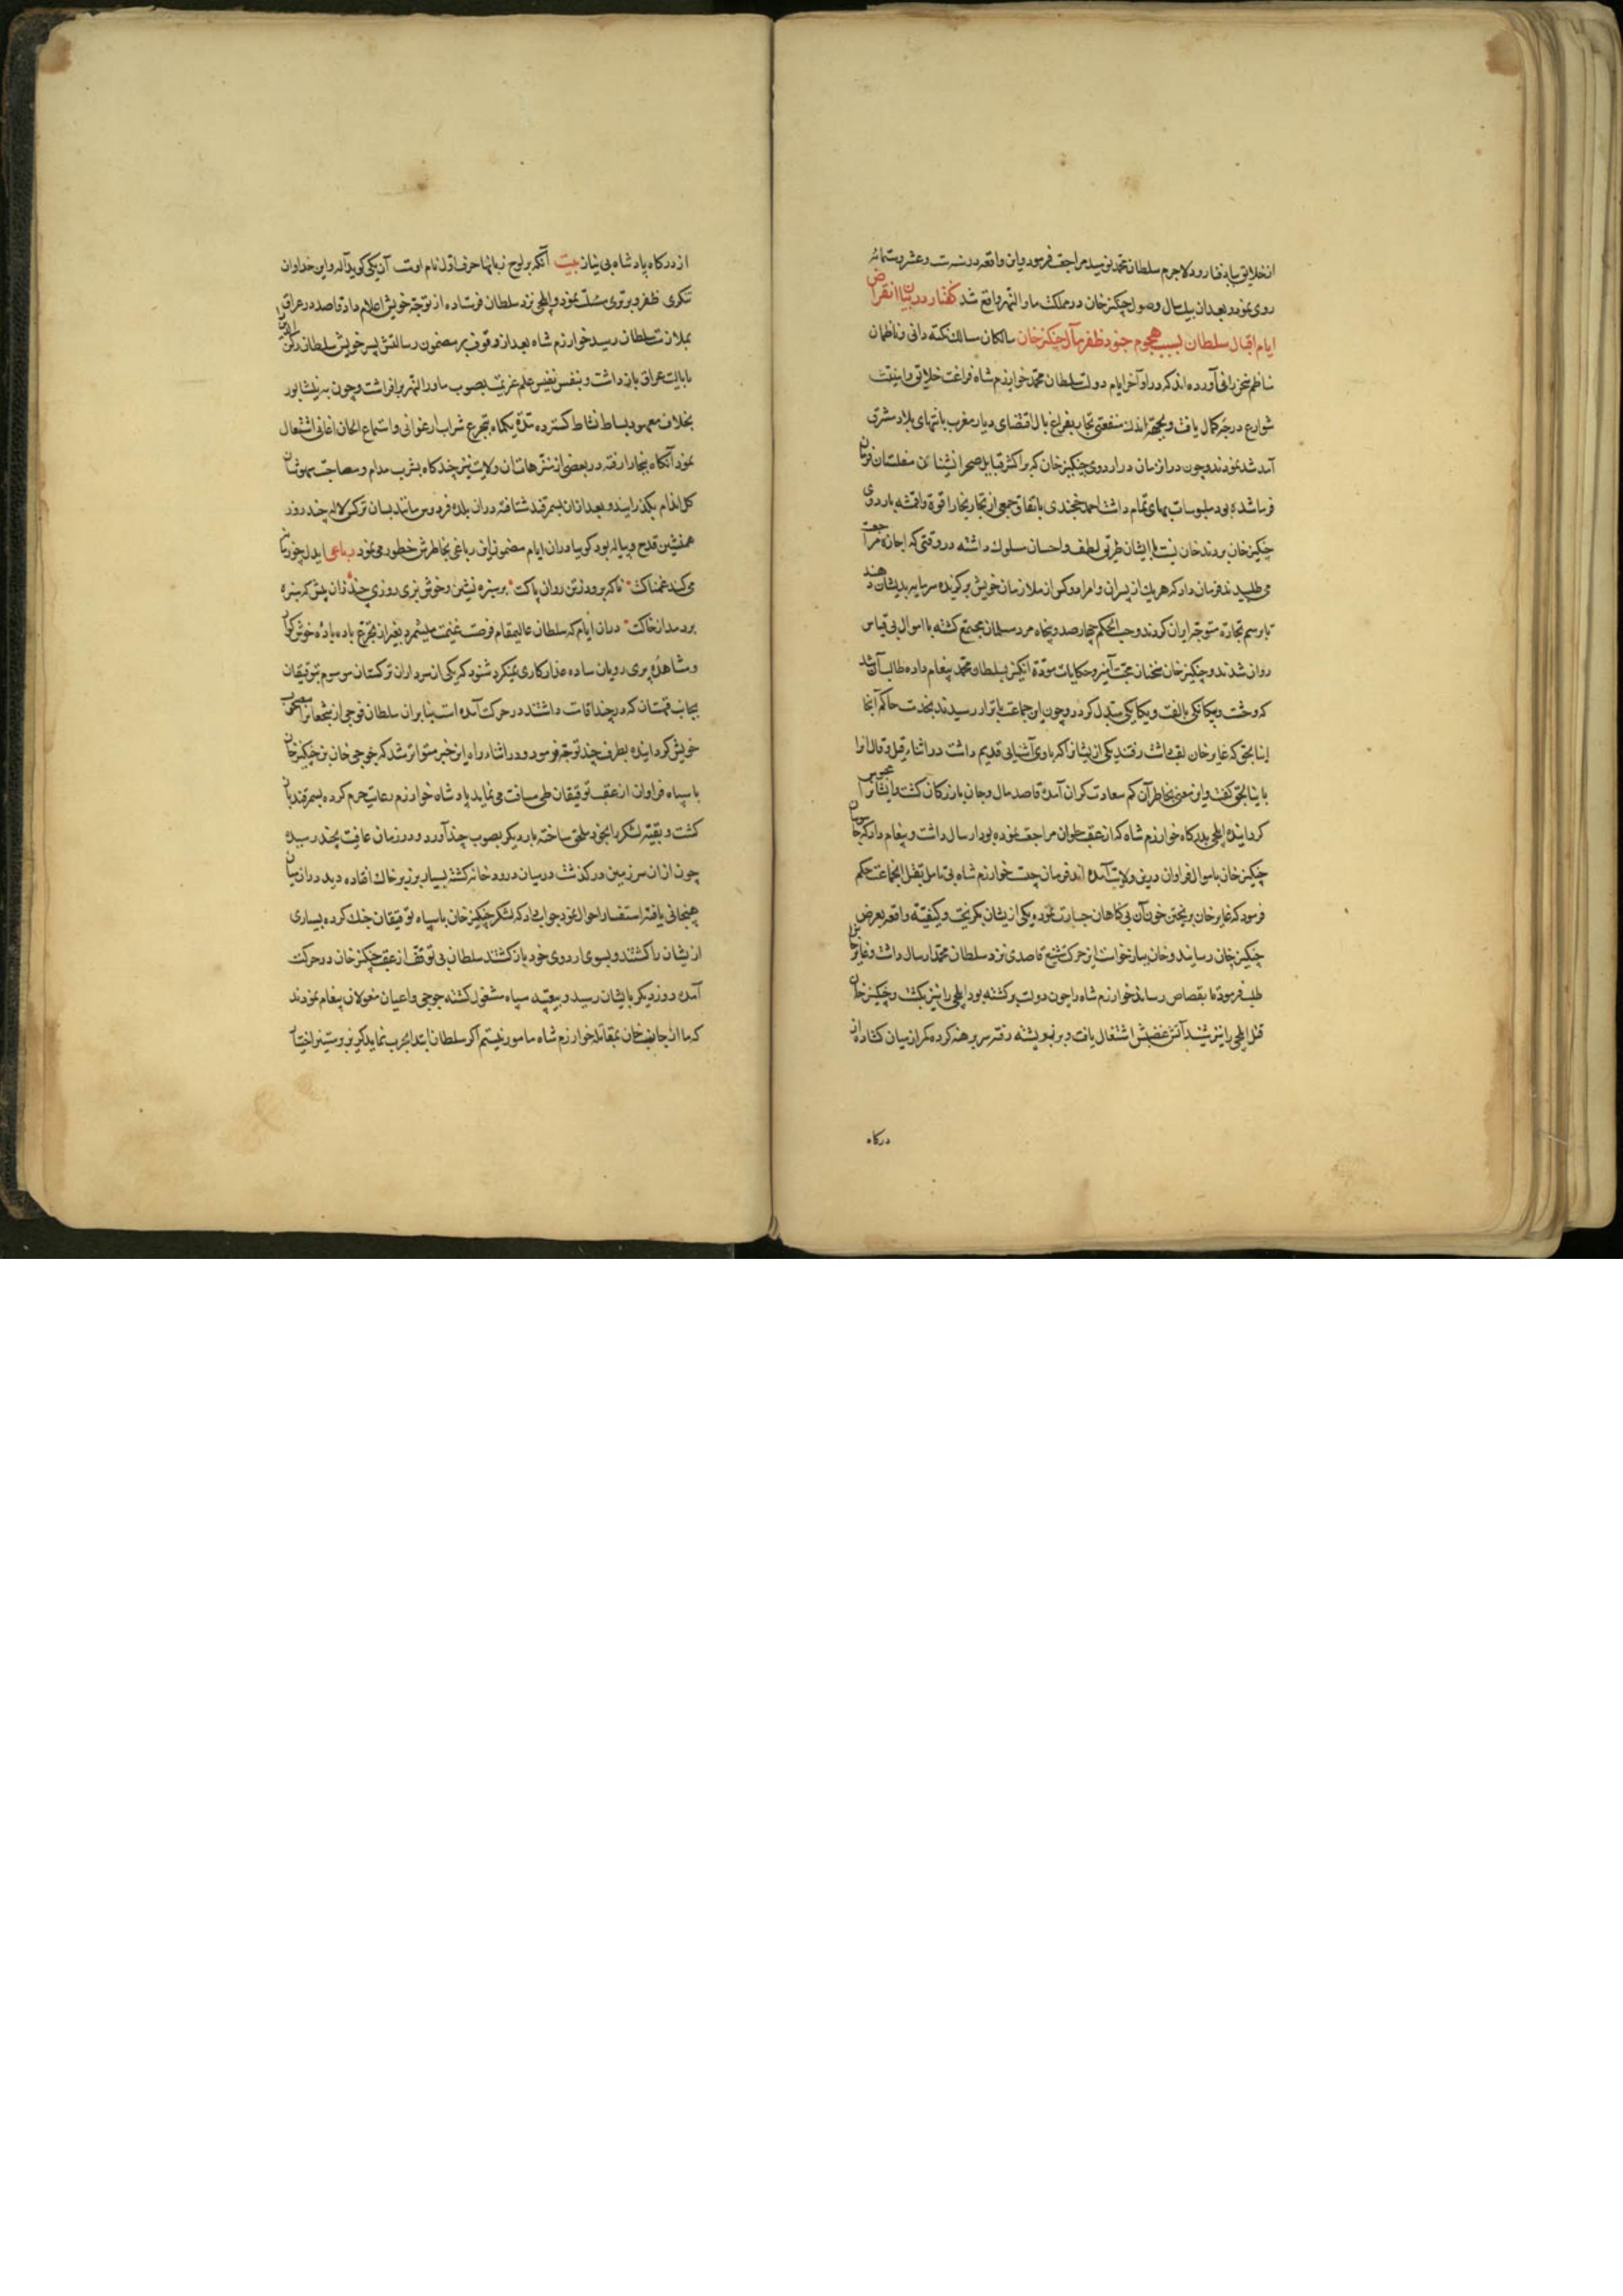 از خلایق بباد فنا رود لاجرم سلطان محمد نومید مراجعت فرمود و این واقعه در سنه ست و عشر و ستمائه
روی نمود و بعد از ان بیک سال وصول چنکیز خان در مملکت ماورا النهر واقع شد کفتار در بیان انقراض
ایام اقبال سلطان بسبب هجوم جنود ظفر مآل چنکیز خان سالکان مسالک نکته دانی و ناظمان
مناظم سخن رانی آورده اند که در اواخر ایام دولت سلطان محمد خوارزم شاه فراغت خلایق و امنیت
شوارع درجه کمال یافت و بجهة اندک منفعتی تجار بفراغ بال از اقصای دیار مغرب بانتهای بلاد مشرق
آمد شد نمودند و چون در ان زمان در اردوی چنکیز خان که بر اکثر قبایل صحرا نشینان
بود ملبوسات بهای تمام داشت احمد خجندی باتفاق جمعی از تجار بخارا و اقمشه باردوی
چنکیز خان بردند خان نسبت با ایشان طریق لطف و احسان سلوک داشته در وقتی که اجازه مراجعت
می طلبیدند فرمان داد که هر یک از پسران و امرا دو کس از ملازمان خویش برکزیده سرمایه بدیشان دهند
تا برسم تجارت متوجه ایران کردند و حسب الحکم چهارصد و پنجاه مرد مسلمان مجتمع کشته با اموال بی قیاس
روان شدند و چنکیز خان سخنان محبت آمیز و حکایات مودة انکیز بسلطان محمد پیغام داده طالب آن شد
که وحشت و بیکانکی بالفت و یکانکی متبدل کردد و چون این جماعت باترار رسیدند بخدمت حاکم آنجا
اینالجق که غایر خان لقب داشت رفتند یکی از یشان که با وی آشنایی قدیم داشت در اثناء قیل و قال او را
باینالجق کفت و این معنی بخاطر آن کم سعادت کران آمده قاصد مال و جان بازرکانان کشت و ایشانرا محبوس
کردانیده ایلچی بدرکاه خوارزم شاه که از عقبه حلوان مراجعت نموده بود ارسال داشت و پیغام داد که جاسوسان
چنکیز خان باموال فراوان درین ولایت آمده اند فرمان چیست خوارزم شاه بی تامل بقتل انجماعت حکم
فرمود که غایر خان بریختن خون آن بی کناهان جسارت نموده یکی از یشان بکریخت و کیفیت واقعه بعرض
چنکیز خان رسانید و خان بباز خواست این حرکت شنیع قاصدی نزد سلطان محمد ارسال داشت و غایر خان
طلب فرمود تا بقصاص رساند خوارزم شاه را چون دولت برکشته بود ایلچی را نیز بکشت و چنکیز خان
قتل ایلچی را نیز شنید آتش غضبش اشتعال یافت و بر پشته رفته سر برهنه کرده کمر از میان کشاده از
درکاه
از درکاه پادشاه بی نیاز بیت آنکه بر لوح زبانها حرف اول نام اوست آن یکی کوید آله و این خدا و ان
تنکری ظفر و برتری مسئلت نمود و ایلچی نزد سلطان فرستاده از توجه خویش اعلام داد قاصد در عراق
بملازمت سلطان رسید خوارزم شاه بعد از وقوف بر مضمون رسالتش پسر خویش سلطان رکن الدین را
بایالت عراق باز داشت و بنفس نفیس علم عزیمت بصوب ماورا النهر برافراشت و چون به نیشابور
بخلاف معهود بساط نشاط کسترده مدة یکماه بتجرع شراب ارغوانی و استماع الحان اغانی اشتغال
نمود آنکاه ببخارا رفته در بعضی از منتزهات ان ولایت نیز چند کاه بشرب مدام و مصاحبت
کل اندام بکذرانید و بعد از ان بسمرقند شتافته در ان بلده فردوس مانند بسان نرکس و لاله چند روز
همنشین قدح و پیاله بود کوییا در ان ایام مضمون این رباعی بخاطرش خطور می نمود رباعی ایدل چو زمانه
می کند غمناکت ناکه برود زتن روان پاکت بر سبزه نشین و خوش بزی روزی چند زان پیش که سبزه
بردمد از خاکت در ان ایام که سلطان عالیمقام فرصت غنیمت میشمرد و بغیر از تجرع باده خوش کوار
و مشاهده پری رویان ساده عذار کاری نمیکرد شنود که یکی از سرداران ترکستان موسوم بتوقتقان
بجانب که در جند اقامت داشتند در حرکت آمده است بنابران سلطان فوجی از شجعانرا مصحوب
خویش کردانیده بطرف جند توجه فرمود و در اثناء راه این خبر متواتر شد که جوجی خان بن چنکیز خان
با سپاه فراوان از عقب توقتقان طی مسافت می نماید پادشاه خوارزم رعایت حزم کرده بسمرقند باز
کشت و بقیه لشکر را بخود ملحق ساخته بار دیکر بصوب جند آورد و در زمان عافیت بجند رسیده
چون از ان سرزمین درکذشت در میان دو رودخانه کشته بسیار بر زبر خاک افتاده دید در ان میان
یافته استفسار احوال نمود جواب داد که لشکر چنکیز خان با سپاه توقتقان جنک کرده بسیاری
از یشان را کشتند و بسوی اردوی خود باز کشتند سلطان بی توقف از عقب چنکیز خان در حرکت
آمده روز دیکر بایشان رسید و بتعبیه سپاه مشغول کشته جوجی و اعیان مغولان پیغام نمودند
که ما از جانب خان بمقاتله خوارزم شاه مامور نیستیم اکر سلطان ابتدا بحرب نماید